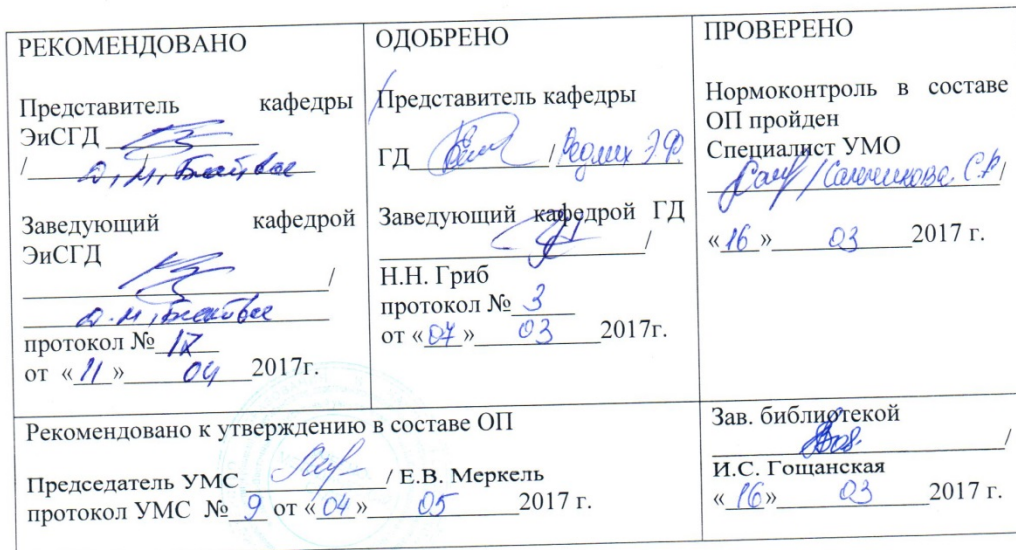 РЕКОМЕНДОВАНО
Представитель кафедры
ЭиСГД
/
Заведующий кафедрой
ЭиСГД
/
протокол №
от «11» 04 2017г.
ОДОБРЕНО
Представитель кафедры
ГД / Редлих Э.Ф.
Заведующий кафедрой ГД
/
Н.Н. Гриб
протокол № 3
от «07» 03 2017г.
ПРОВЕРЕНО
Нормоконтроль в составе
ОП пройден
Специалист УМО
/ С.Р. /
«16» 03 2017 г.
Рекомендовано к утверждению в составе ОП
Председатель УМС / Е.В. Меркель
протокол УМС № 9 от «04» 05 2017 г.
Зав. библиотекой
/
И.С. Гощанская
«16» 03 2017 г.